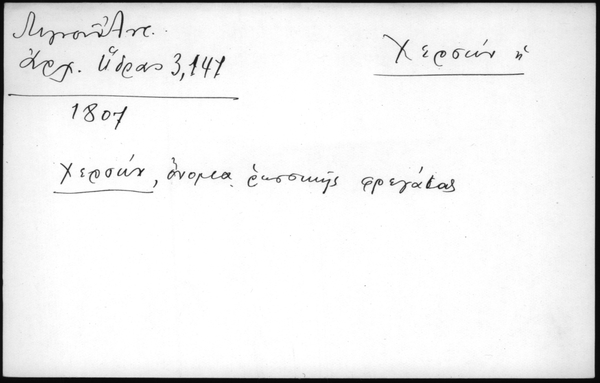 Λιγνοῦ Ἀντ.
Ἀρχ. Ὕδρας 3,141
Χερσών ἡ
1807
Χερσών, ὄνομα ῥωσσικῆς φρεγάτας